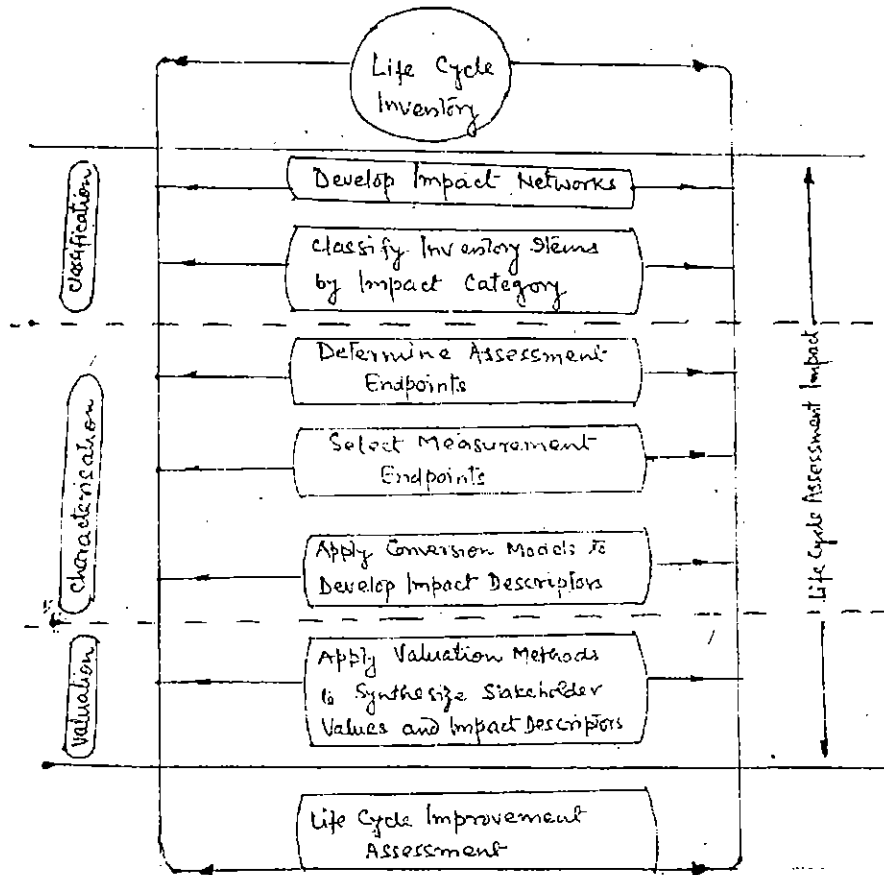 Life Cycle
Inventory
Classification
Develop Impact Networks
Classify Inventory Items
by Impact Category
Characterisation
Determine Assessment
Endpoints
Select Measurement
Endpoints
Apply Conversion Models to
Develop Impact Descriptors
Life Cycle Assessment Impact
Valuation
Apply Valuation Methods
to Synthesize Stakeholder
Values and Impact Descriptors
Life Cycle Improvement
Assessment